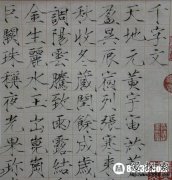 千字文
天地元黃宇宙洪
盈昃辰宿列張寒來
秋收冬藏閏餘成歲
調陽雲騰致雨露結
金生麗水玉出崑崗
巨闕珠稱夜光果珍